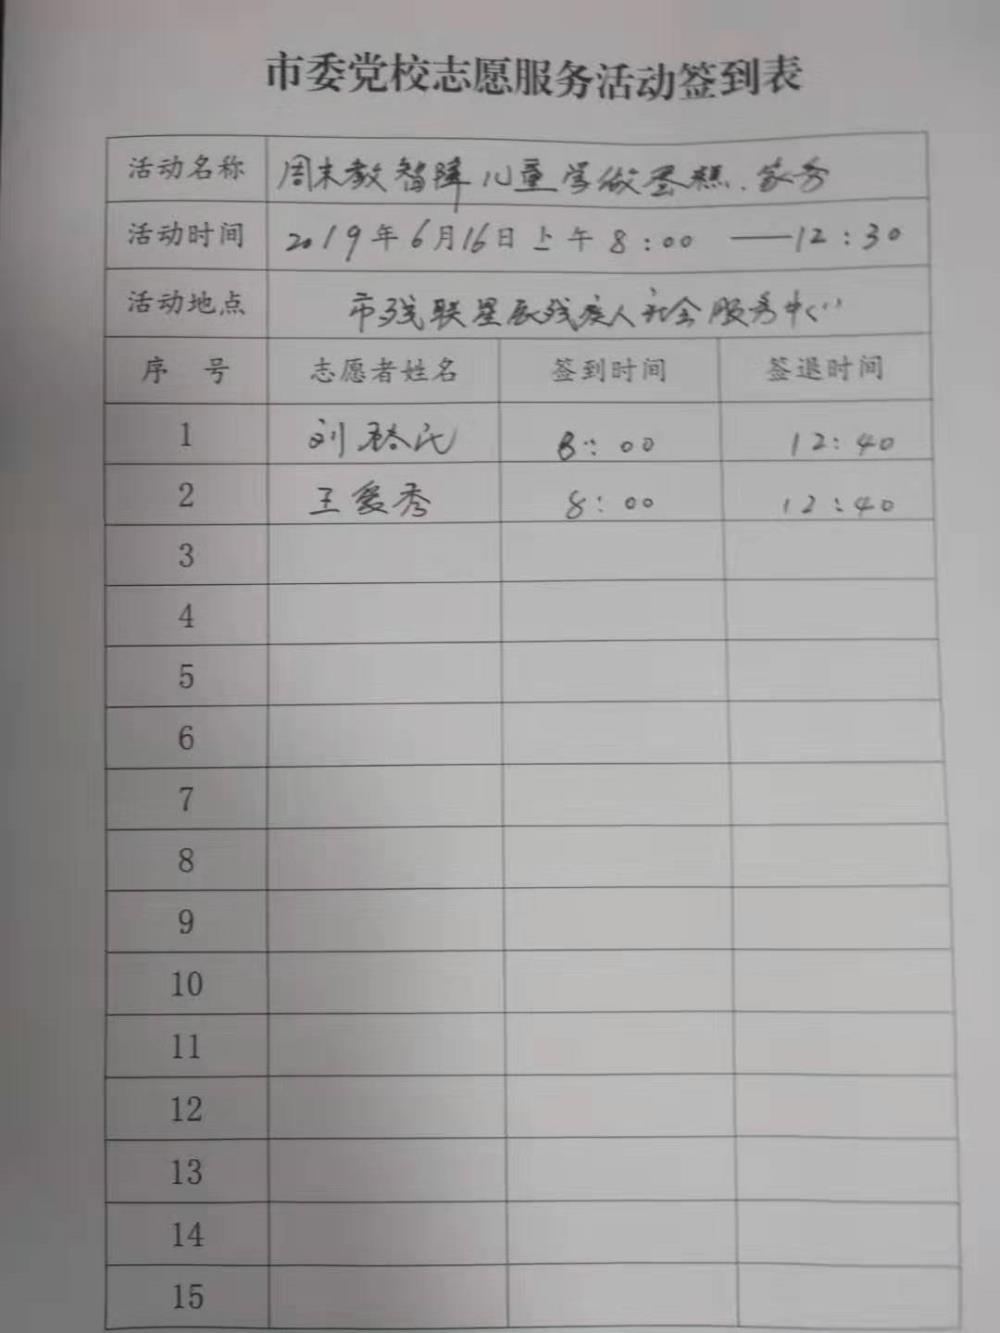 市委党校志愿服务活动签到表
活动名称 周末教智障儿童学做蛋糕、
活动时间 2019年6月16日上午8:00 ——12:30
活动地点 市残联星辰残疾人社会服务中心
序 号 志愿者姓名 签到时间 签退时间
1 刘 8:00 12:40
2 王爱秀 8:00 12:40
3
4
5
6
7
8
9
10
11
12
13
14
15